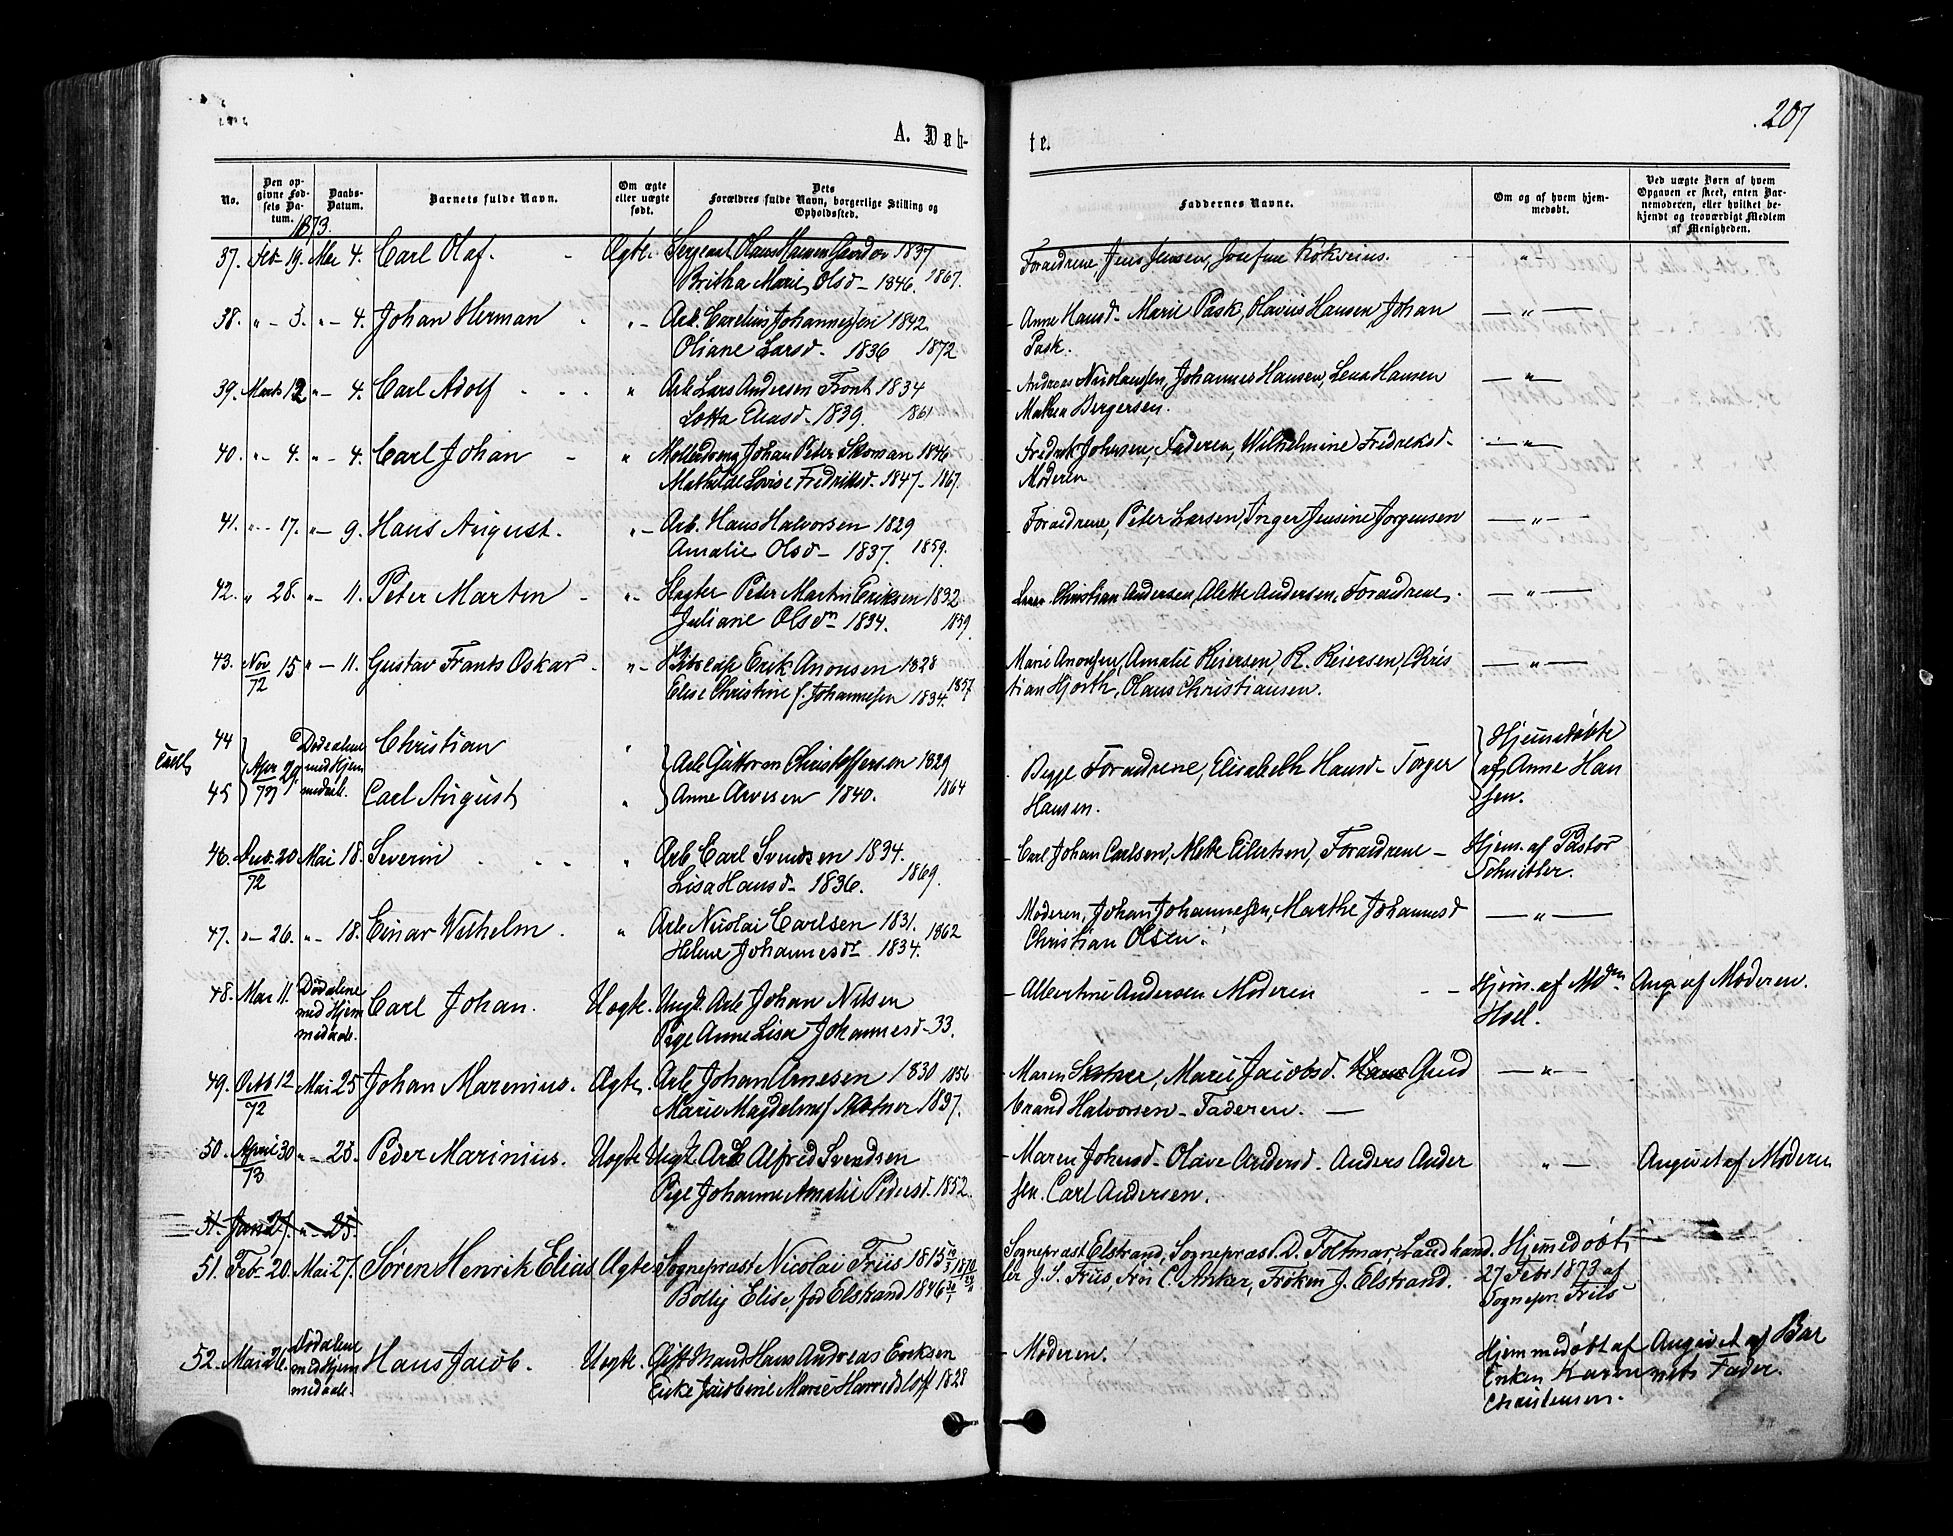 207
A. Døb-
te.
No.
Den op-
givne Fød-
sels Da-
tum.
Daabs-
Datum.
Barnets fulde Navn.
Om ægte
eller uægte
født.
Dets
Forældres fulde Navn, borgerlige Stilling og
Opholdssted.
Faddernes Navne.
Om og af hvem hjem-
medøbt.
Ved uægte Børn af hvem
Opgaven er skeet, enten Bar-
nemoderen, eller hvilket be-
kjendt og troværdigt Medlem
af Menigheden.
1873.
37. Feb 19. Mai 4. Carl Olaf. Ægte. Sergeant Olaus Hansen 1837
Britha Marie Olsd 1846. 1867.
Forældrene, Jens Jensen, Josefine
38. " - 5. " - 4. Johan Herman " - Arb. Carelius Johannessen 1842
Oliane Larsd. 1836 1872
Anne Hansd. Marie Pask, Olavus Hansen, Johan — " —
Pask.
39. Marts 12 " - 4. Carl Adolf " Arb Lars Andersen Front 1834
Lotta Eliasd. 1839. 1861
Andreas Nicolaussen, Johannes Hansen, Lena Hansen — " —
Mathea Bergersen.
40. " - 4. " - 4. Carl Johan " Johan Peter 1846
Mathilde Lovise Fredriksd. 1847 - 1867.
Fredrik Johnsen, Faderen, Wilhelmine Fredriksd — " —
Moderen
41. " - 17. " - 9. Hans August. " - Arb. Hans Halvorsen 1829
Amalie Olsd 1837. 1859.
Forældrene, Peter Larsen, Inger Jensine Jorgensen — " —
42. " 28. " - 11. Peter Marten " - Slagter Peter Martin Eriksen 1832
Juliane Olsdn 1834. 1859.
Christian Andersen, Alette Andersen, Forældrene. — " —
43. Nov 72 15 " - 11. Gustav Frants Oskar " - Skibscap Erik Anonsen 1828
Elise Christine f. Johannessen 1834. 1857
Marie Anonsen, Amalie Reiersen, R. Reiersen, Chris — " —
tian Hjorth, Olaus Christiansen.
44 Christian
Tvill. Apr 73 29 Døds alene
med Hjem
medaab.
45 Carl August " Arb Guttorm Christoffersen 1829
Anne Arvesen 1840. 1864
Begge Forældrene, Elisabeth Hansd Torger
Hansen.
Hjemdøbte
af Anne Han
sen.
46. Dec. 72 20 Mai 18. Severin " Arb. Carl Svendsen 1834.
Lisa Hansd 1836. 1869.
Carl Johan Carlsen, Mette Eilertsen, Forældrene —
Hjem. af Pastor
Schnitler.
47. " - 26. " - 18. Einar Wilhelm. " Arb Nicolai Carlsen 1831. 1862
Helene Johannesdr 1834.
Moderen, Johan Johannessen, Marthe Johannesd — " —
Christian Olsen.
48. Mai 11. Døds alene
med Hjem
medaab.
Carl Johan. Uægte. Ungk. Arb Johan Nilsen
Pige Anne Lisa Johannesd 33.
Albertine Andersen Moderen
Hjem. af Mdm
Hoel.
Ang. af Moderen.
49. Octb 72 12 Mai 25 Johan Marenius. Ægte. Arb Johan Arnesen 1830 1856
Marie Magdalene f 1837.
Maren Marie Jacobsd. Gud — " —
brand Halvorsen - Faderen. —
50. April 73 30 " - 25. Peder Marinius. Uægte Ungk Arb Alfred Svendsen
Pige Johanne Amalie Pedersd. 1852.
Maren Johnsd - Olave Andersd. Anders Ander " —
sen. Carl Andersen.
Angivet af Moderen
51. Jan 27. " - 25
51. Feb 20. Mai 27. Søren Henrik Elias Ægte Sogneprest Nicolai Friis 1815
Bolly Elise, fød Elstrand 1846
Sogneprast Elstrand, Sogneprast D. Landhand.
ler J. S. Friis, Frøi C. Anker, Frøken J. Elstrand.
Hjemmedøbt
27 Febr 1873 af
Sognepr. Friis
52. Mai 26. Dødalene
med Hjem
medaab.
Hans Jacob. Uægte. Gift Mand Hans Andreas Eriksen
Enke Jacobine Marie 1828
Moderen.
Hjemmedøbt af
Enken Karen
Christensen.
Angivet af Bar
nets Fader.